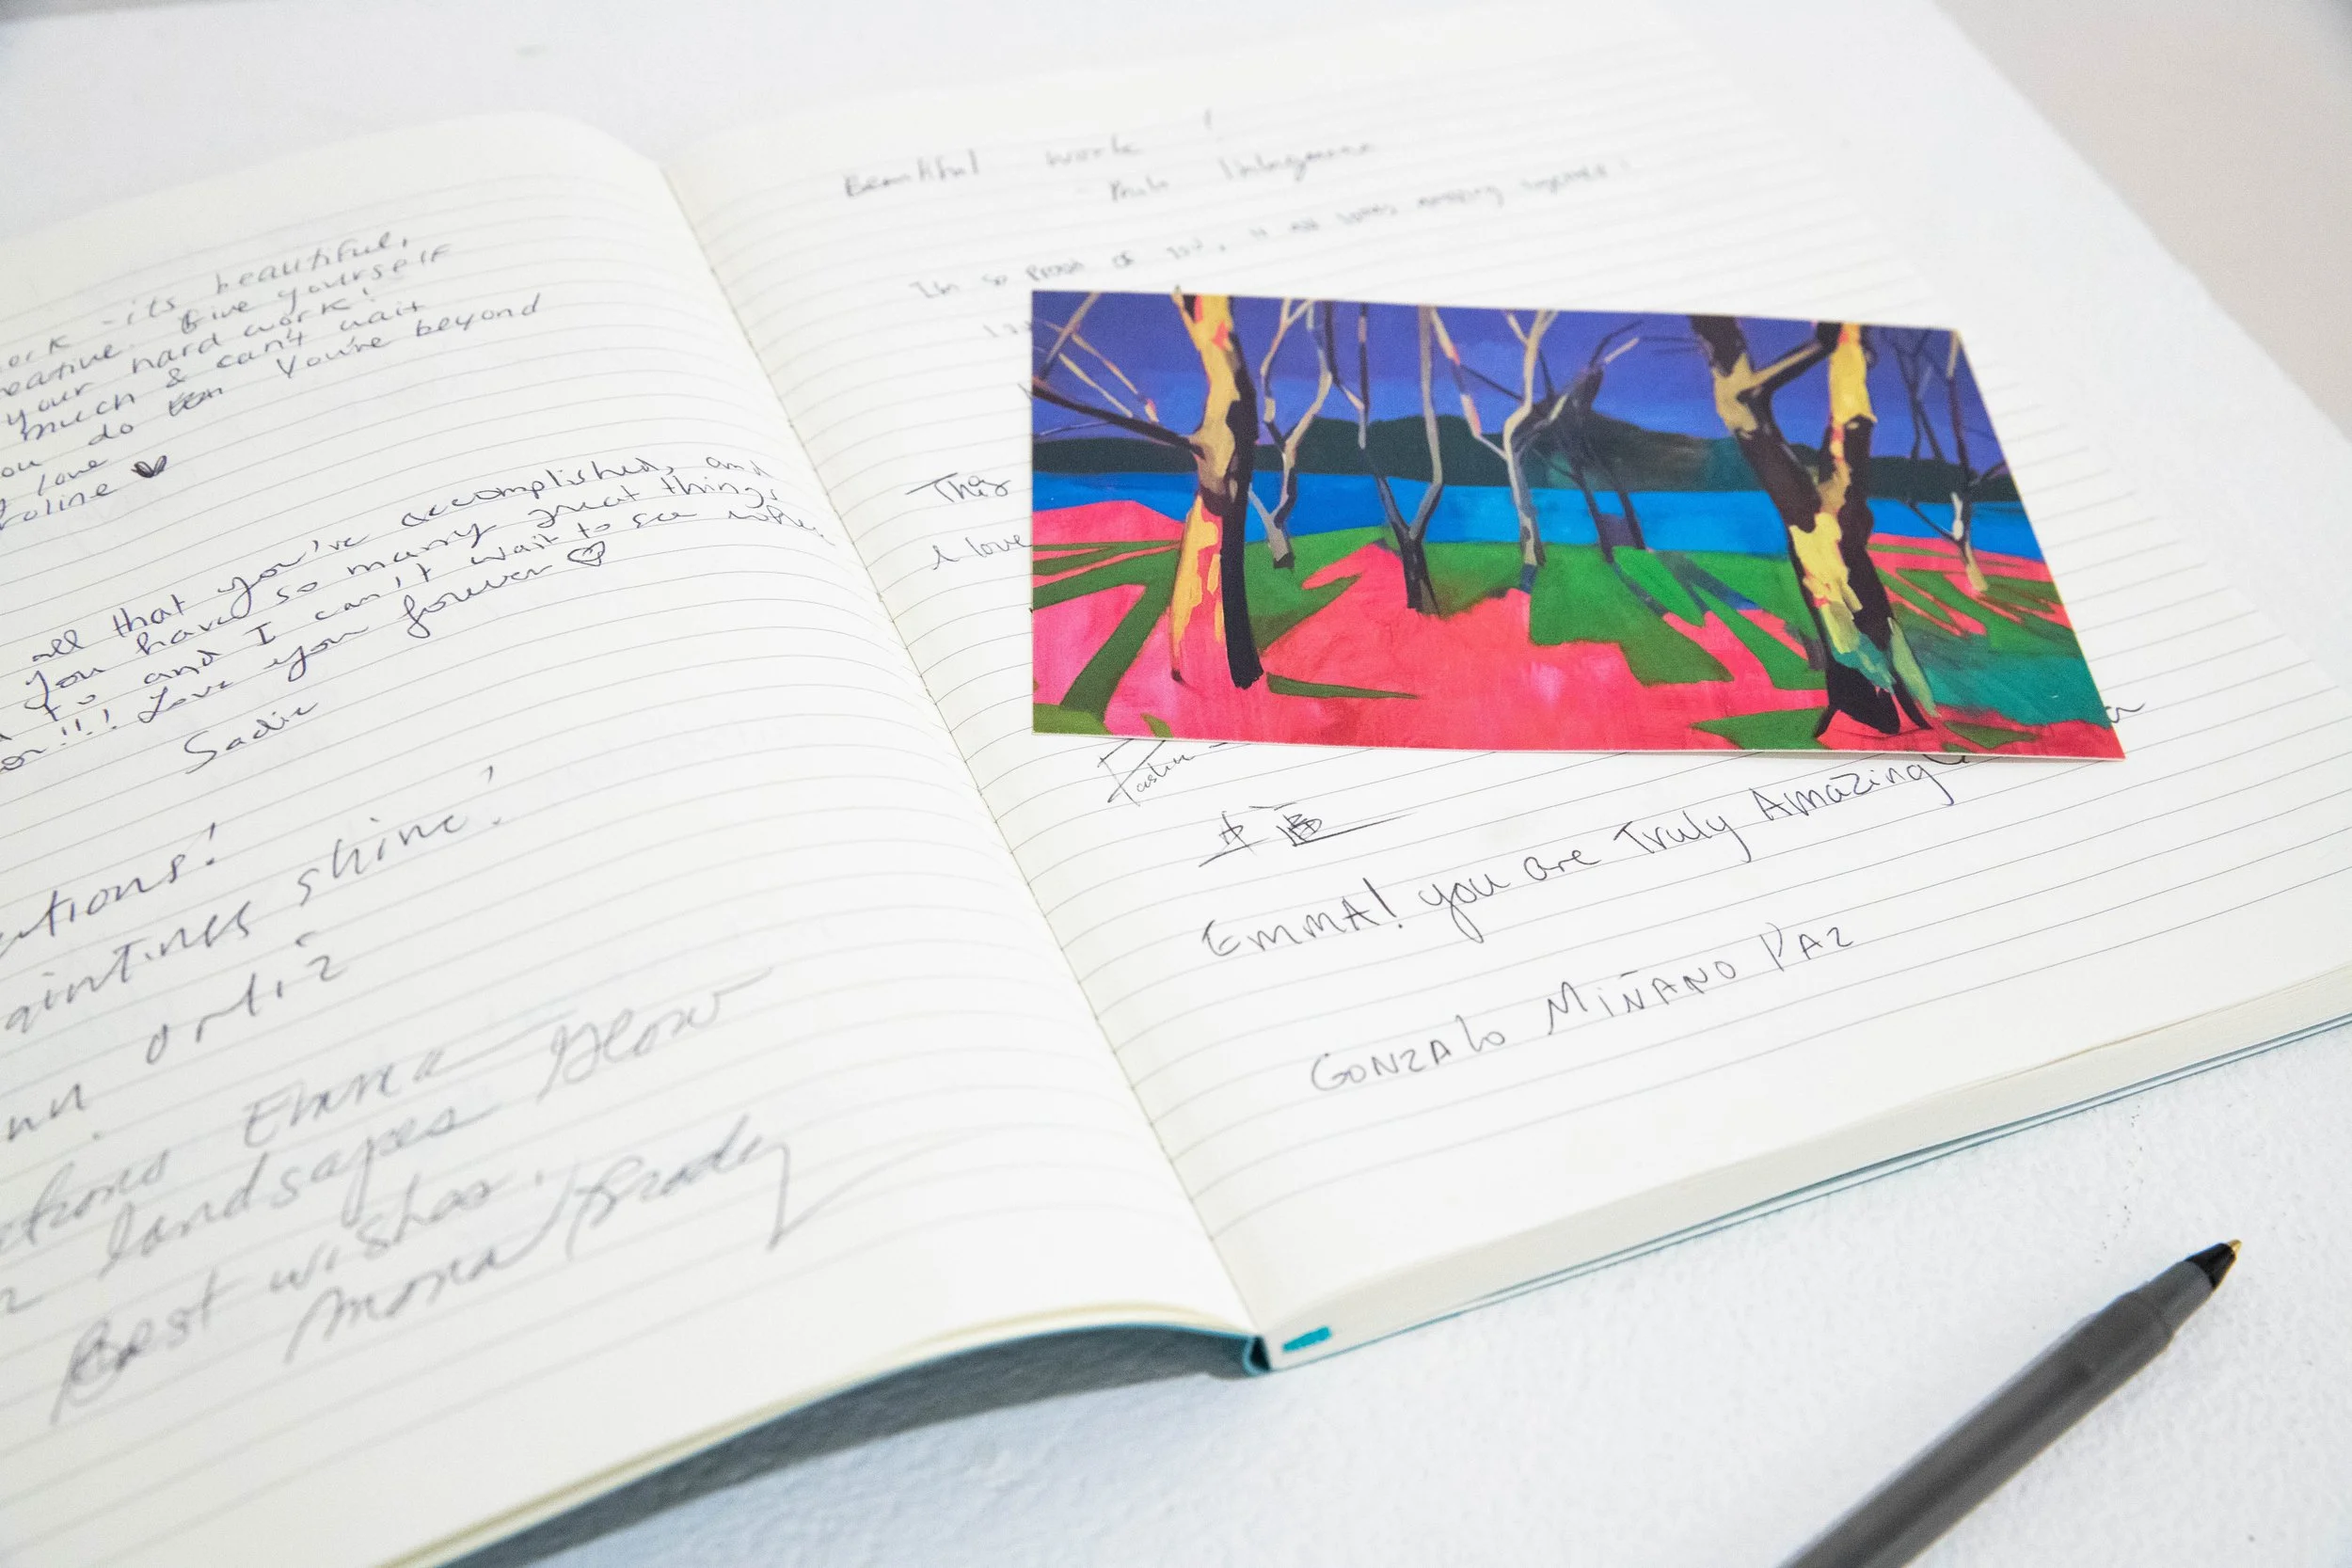 ork - its beautiful,
eative. Give yourself
your hard work!
much & can't wait
ou do You're beyond
love
roline
all that you've accomplished, and
you have so many great things
to and I can't wait to see where
on!!! Love you forever
Sadie
ations!
aintings shine!
nn ortiz
ations Emma
landsapes Glow
Best wishes.
Mona Grady
Beautiful work!
I'm so proud of you, it all looks amazing together!
This
I love
EMMA! you are Truly Amazing
GONZALO MIÑANO PAZ